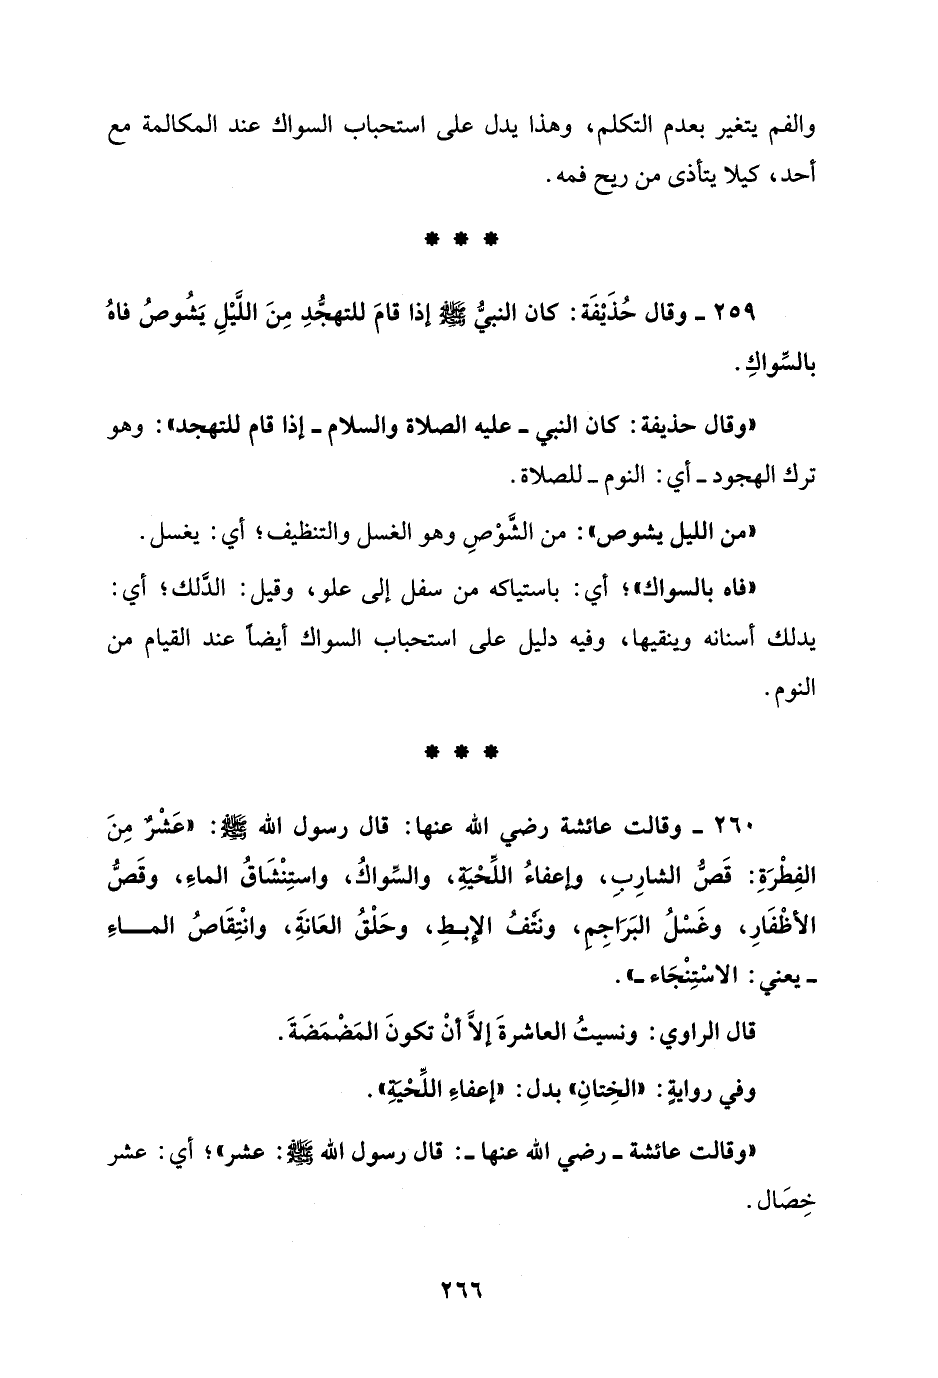 والفم يتغير بعدم التكلم، وهذا يدل على استحباب السواك عند المكالمة مع
أحد، كيلا يتأذى من ريح فمه.
* * *
٢٥٩ ـ وقال حُذَيْفَة: كان النبيُّ ﷺ إذا قامَ للتهجُّدِ مِنَ اللَّيْلِ يَشُوصُ فاهُ
بالسِّواكِ.
«وقال حذيفة: كان النبي ـ عليه الصلاة والسلام ـ إذا قام للتهجد»: وهو
ترك الهجود ـ أي: النوم ـ للصلاة.
«من الليل يشوص»: من الشَّوْصِ وهو الغسل والتنظيف؛ أي: يغسل.
«فاه بالسواك»؛ أي: باستياكه من سفل إلى علو، وقيل: الدَّلك؛ أي:
يدلك أسنانه وينقيها، وفيه دليل على استحباب السواك أيضاً عند القيام من
النوم.
* * *
٢٦٠ ـ وقالت عائشة رضي الله عنها: قال رسول الله ﷺ: «عَشْرٌ مِنَ
الفِطْرَةِ: قَصُّ الشارِبِ، وإعفاءُ اللِّحْيَةِ، والسِّواكُ، واستِنْشَاقُ الماءِ، وقَصُّ
الأظْفَارِ، وغَسْلُ البَرَاجِمِ، ونتْفُ الإبطِ، وحَلْقُ العَانَةِ، وانْتِقَاصُ الماءِ
ـ يعني: الاسْتِنْجَاء ـ».
قال الراوي: ونسيتُ العاشرةَ إلاَّ أنْ تكونَ المَضْمَضَةَ.
وفي روايةٍ: «الخِتانِ» بدل: «إعفاءِ اللِّحْيَةِ».
«وقالت عائشة ـ رضي الله عنها ـ: قال رسول الله ﷺ: عشر»؛ أي: عشر
خِصَال.
٢٦٦